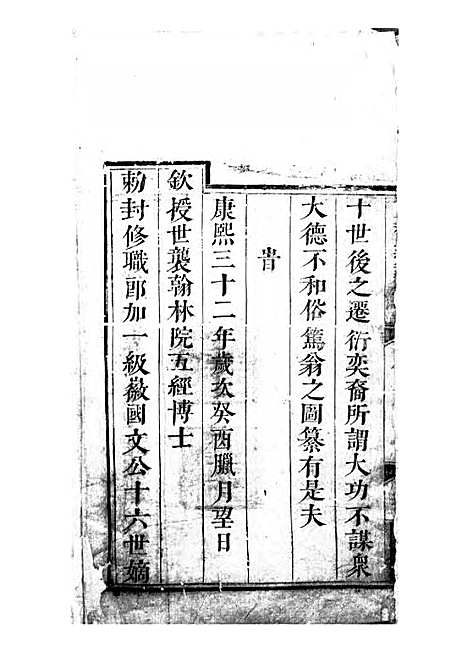 十世後之遷衍奕裔所謂大功不謀衆
大德不和俗篤翁之圖纂有是夫
旹
康熙三十二年歲次癸酉臘月望日
欽授世襲翰林院五經博士
勅封修職郎加一級徽國文公十六世嫡